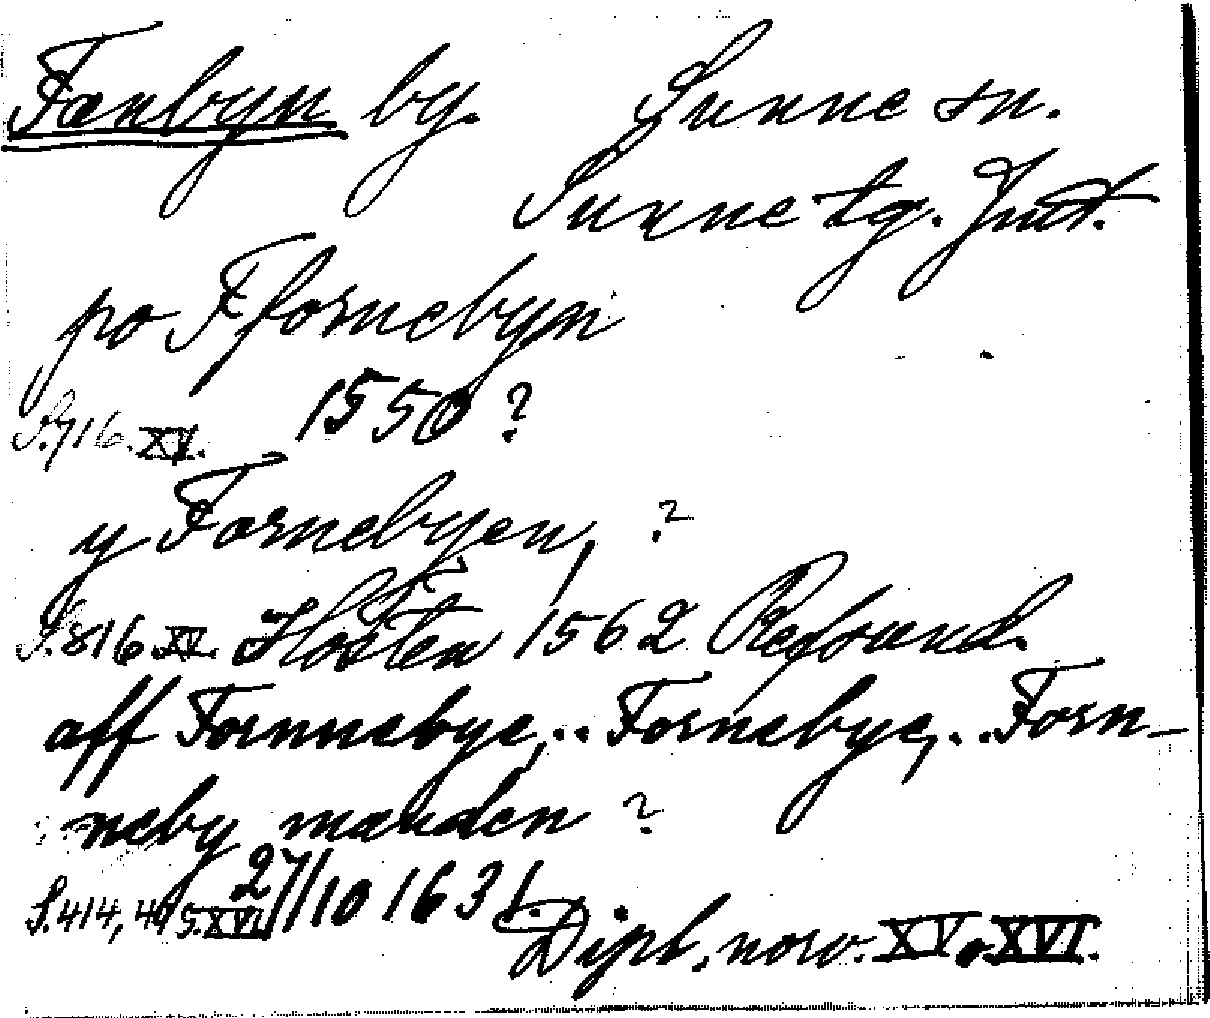 Fanbyn by. Sunne sn.
Sunne tg. Jmt.
po Ffornebyn
S. 716. XV. 1550 ?
y Fornebyen, ?
S. 816 XV. Hösten 1562 Refsund.
aff Fornnebye, .. Fornebye, .. Forn-
neby manden ?
S. 414, 415 XVI 27/10 1631.
Dipl. norv. XV o. XVI.